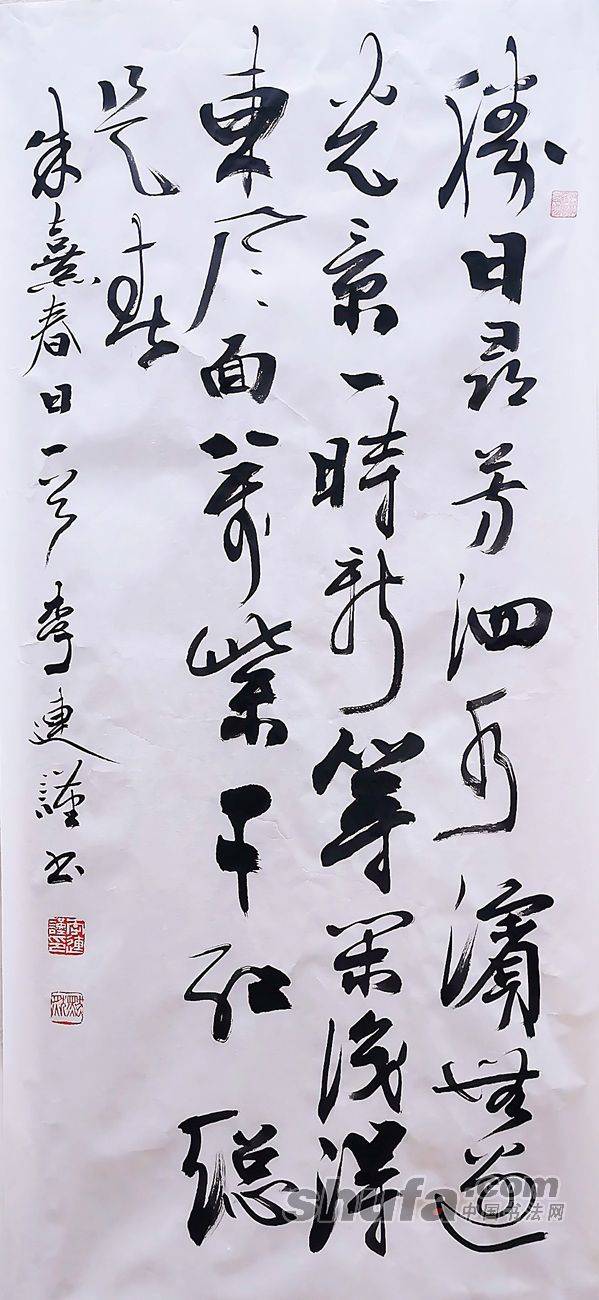 勝日尋芳泗水濱無邊
光景一時新等閑識得
東風面萬紫千紅總
是春
朱熹春日一首 李連謹书
shufa.com
中国书法网